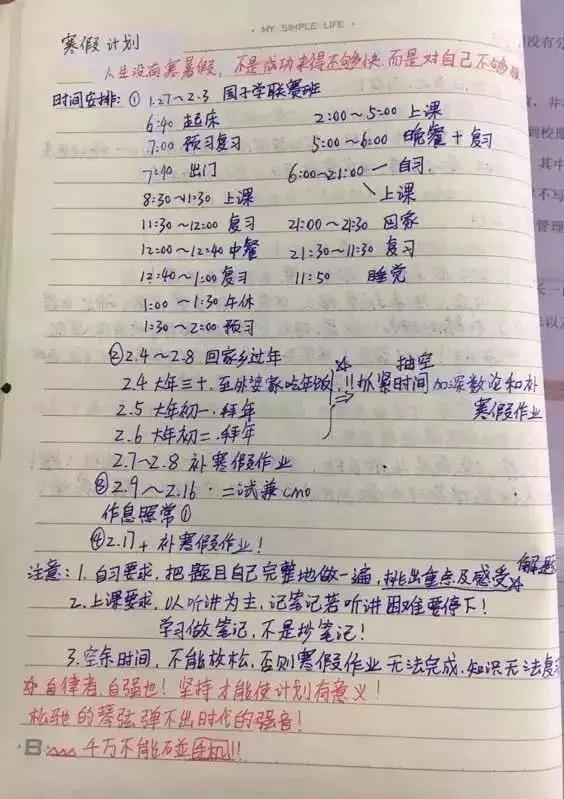 · MY SIMPLE LIFE ·
寒假计划
人生没有寒暑假，不是成功来得不够快，而是对自己不够狠
时间安排: ① 1.27～2.3 国子学联赛班
6:40 起床 2:00～5:00 上课
7:00 预习复习 5:00～6:00 晚餐+复习
7:40 出门 6:00~21:00 — 自习
8:30~11:30 上课 ＼上课
11:30～12:00 复习 21:00～21:30 回家
12:00～12:40 中餐 21:30～11:30 复习
12:40～1:00 复习 11:50 睡觉
1:00～1:30 午休
1:30～2:00 预习
② 2.4～2.8 回家乡过年
2.4 大年三十.至外婆家吃年饭 !! 抓紧时间 抽空 加深数论和补
2.5 大年初一.拜年 寒假作业
2.6 大年初二.拜年
2.7~2.8 补寒假作业
③ 2.9～2.16 · 二试兼cmo
作息照常①
④ 2.17+ 补寒假作业!
注意: 1. 自习要求，把题目自己完整地做一遍，挑出重点及解题感受
2. 上课要求，以听讲为主，记笔记若听讲困难要停下!
学习做笔记，不是抄笔记!
3. 空余时间，不能放松，否则寒假作业无法完成，知识无法复
☆ 自律者，自强也! 坚持才能使计划有意义!
松弛的琴弦弹不出时代的强音!
· B: 千万不能碰手机!!!
没有分